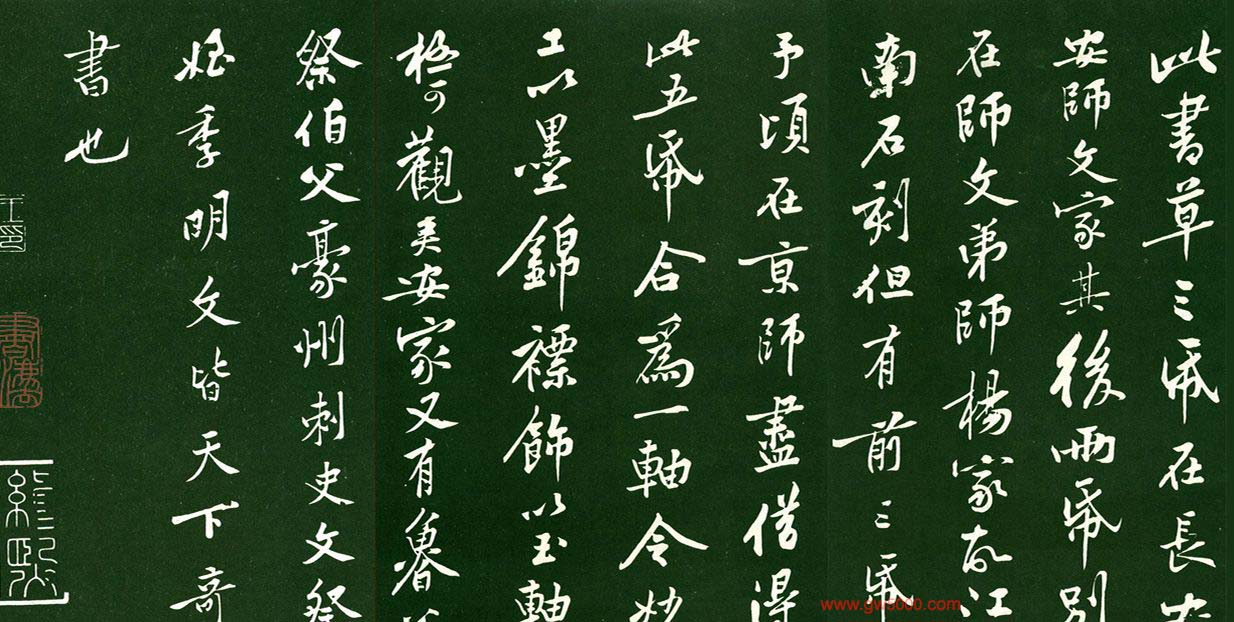 此書草三帋在長
安師文家其後兩帋別
在師文弟師楊家故江
南石刻但有前三帋
予頃在京師盡借得
此五帋合爲一軸令妙
工以墨錦褾飾以玉軸
極可觀矣安家又有魯
祭伯父豪州刺史文祭
姪季明文皆天下奇
書也
www.gw5000.com